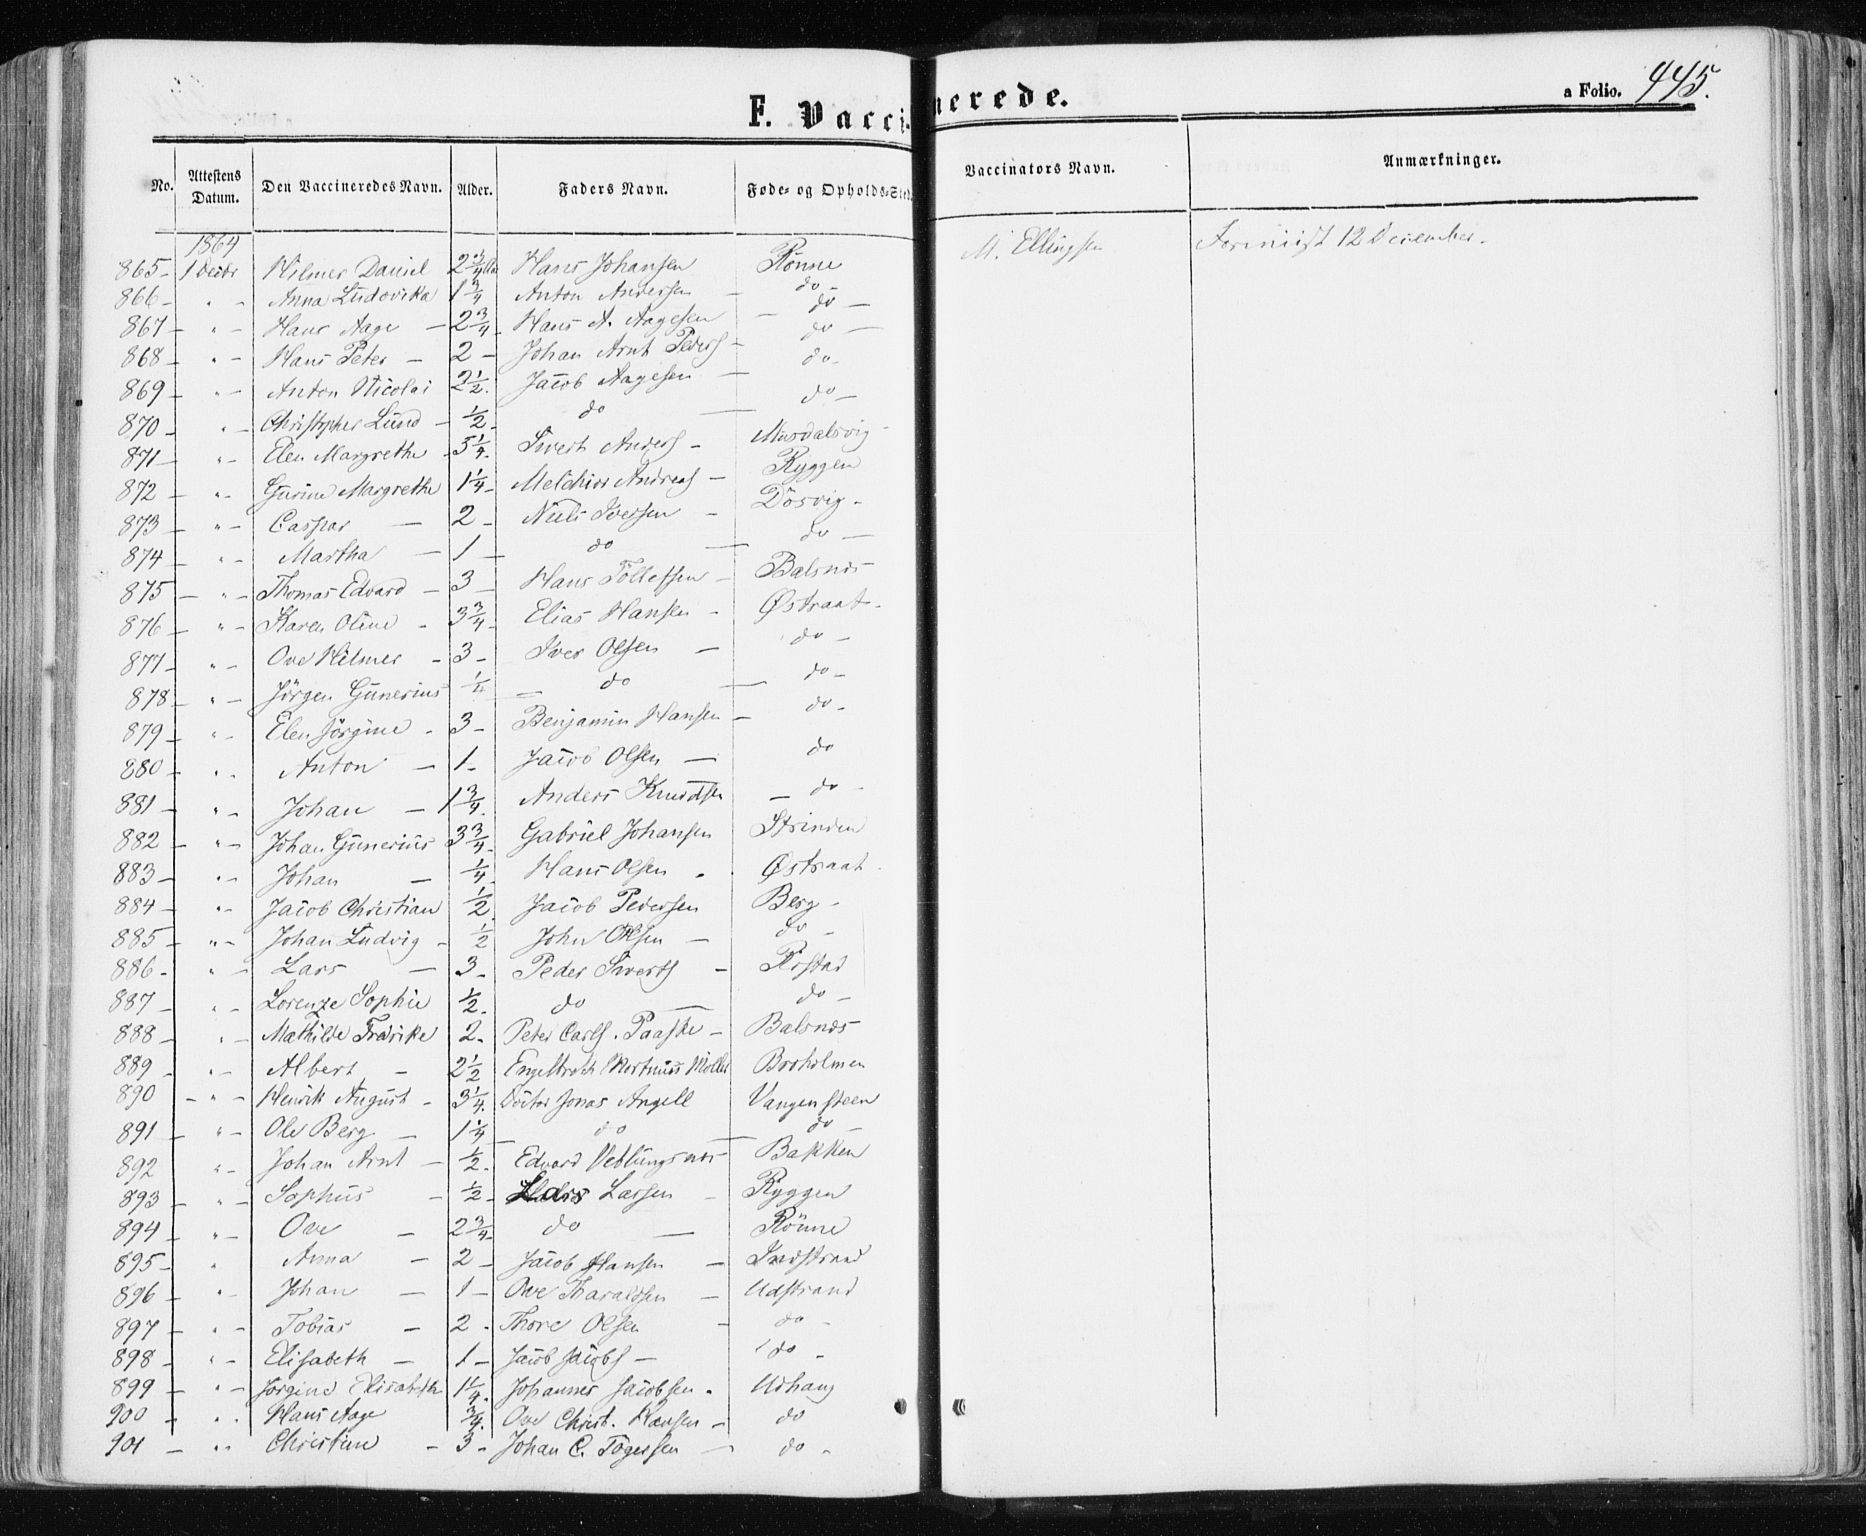 F. Vaccinerede.
a Folio. 445.
No. Attestens Datum. Den Vaccineredes Navn. Alder. Faders Navn. Føde- og Opholds-Sted. Vaccinators Navn. Anmærkninger.
1864
865 - 1 Decbr Hilmer Daniel 2 3/4 Hans Johansen Rönne M. Ellingsen 12 December.
866 - " - Anna Ludovika 1 3/4 Anton Andersen - do -
867 - " - Hans Aage - 2 3/4 - Hans A. Aagesen - do -
868 - " - Hans Peter - 2 - Johan Arnt Peders - do -
869 - " - Anton Nicolai 2 1/2. Jacob Aagesen - do -
870 - " - Christopher Lund - 1/2 - do - do -
871 - " - Elen Margrethe - 3 1/4. Sivert Anders - Musdalsvig -
872 - " - Gurine Margrethe 1 1/4 - Melchior Andreas - Ryggen
873 - " - Caspar - 2 - Niels Iversen - Dösvig -
874 - " - Martha - 1 - do - do -
875 - " - Thomas Edvard - 3 - Hans Tollefsen - Balsnes -
876 - " - Karen Oline - 3 3/4 - Elias Hansen - Østraat -
877 - " - Ove Hilmer - 3 - Iver Olsen - do -
878 - " - Jörgen Gunerius 1/4 - do - do -
879 - " - Elen Jörgine - 3 - Benjamin Hansen - do -
880 - " - Anton - 1 - Jacob Olsen - do
881 - " - Johan - 1 3/4. Anders Knudsen - do -
882 - " - Johan Gunerius 3 3/4 - Gabriel Johansen Strinden
883 - " - Johan - 1/4 - Hans Olsen - Østraat -
884 - " - Jacob Christian 1/2. Jacob Pedersen Berg -
885 - " - Johan Ludvig - 1/2 John Olsen - do -
886 - " - Lars - 3 - Peder Siverts - Rostad
887 - " - Lorenze Sophie 1/2. do - do -
888 - " - Mathilde Fredrike 2 - Peter Carls. Paaske - Balsnes
889 - " - Albert - 2 1/2 Engelbrekt Moller Broholmen
890 - " - Henrik August - 3 1/4. Doctor Jonas Angell Vangensteen
891 - " - Ole Berg - 1 1/4 - do - do -
892 " - Johan Arnt - 1/2. Edvard Veblungsnes Bakken
893 - " - Sophus - 1/2 - Lars Larsen - Ryggen
894 - " - Ove - 2 3/4 - do - Rönne
895 - " Anna - 2 - Jacob Hansen - Indstrand
896 - " - Johan - 1 - Ove Tharaldsen - Udstrand
897 - " - Tobias - 2 - Thore Olsen - do -
898 - " - Elisabeth - 1 - Jacob Jacobs - do -
899 - " - Jörgine Elisabeth 1 1/4. Johannes Jacobsen - Udhaug
900 - " - Hans Aage 3/4. Ove Christ. Hansen - do
901 - " - Christine - 3 - Johan C. Tögersen - do -